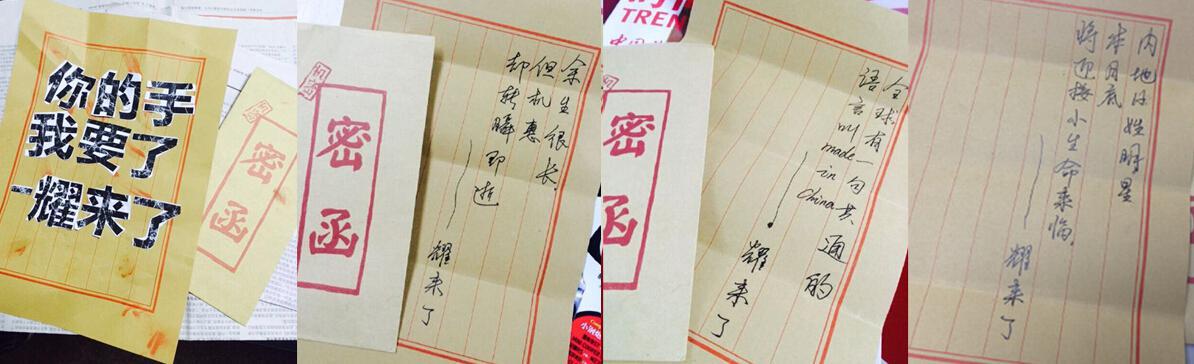 你的手
我要了
一耀来了
密函
密函
余生很长
但机惠
却转瞬即逝
——耀来了
密函
TREN
全球有一句共通的
语言叫made-in China
——耀来了
内地H姓明星
本月底
将迎接小生命来临.
——耀来了